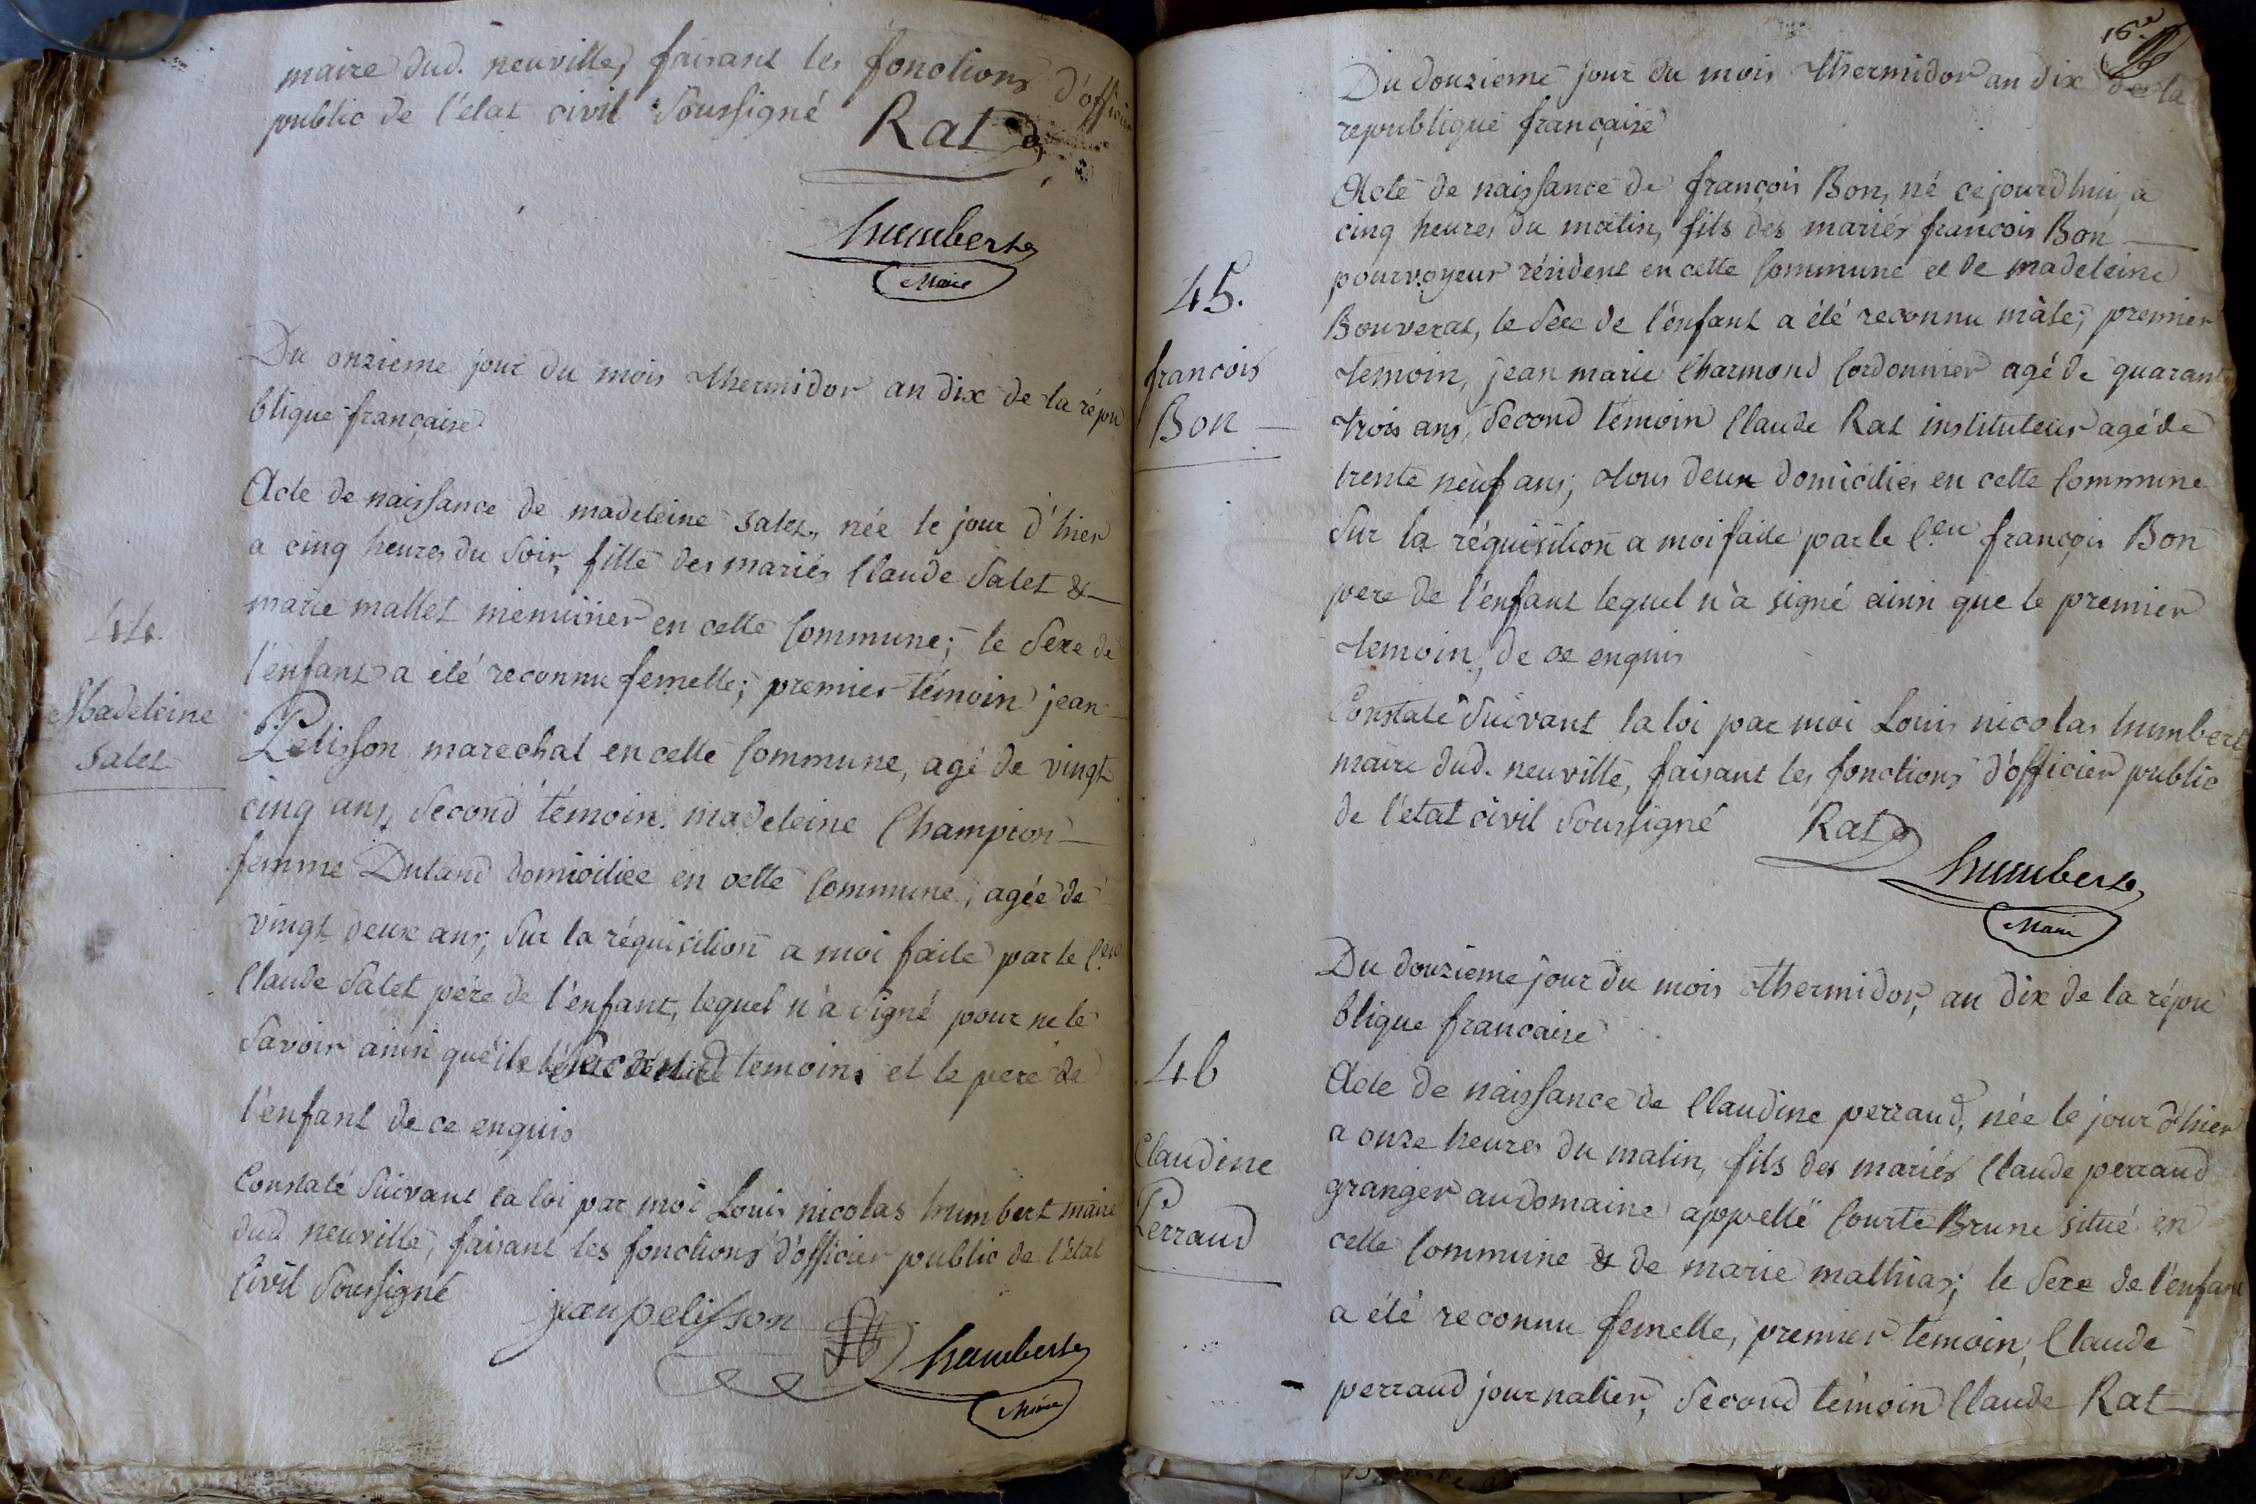 maire dud. neuville, faisant les fonctions d'officier
public de l'état civil soussigné
Rat
humbert
Maire
Du onzieme jour du mois thermidor an dix de la répu
blique française
44.
Madeleine
Salet
Acte de naissance de madeleine Salet, née le jour d'hier
a cinq heures du soir, fille des mariés Claude Salet &
marie mallet menuisier en cette Commune; le sexe de
l'enfant a été reconnu femelle; premier témoin jean
Pelisson marechal en cette Commune, agé de vingt
cinq ans, second témoin madeleine Champion
femme Duland domiciliée en cette Commune, agée de
vingt deux ans; sur la réquisition a moi faite par le C.en
Claude Salet père de l'enfant, lequel n'a signé pour ne le
savoir ainsi que second temoin et le pere de
l'enfant de ce enquis
Constaté suivant la loi par moi Louis nicolas humbert maire
dud neuville, faisant les fonctions d'officier public de l'état
Civil soussigné
jean pelisson
humbert
Maire
16.e
Du douzieme jour du mois thermidor an dix de la
republique française
45.
francois
Bon
Acte de naissance de françois Bon, né ce jourd'hui a
cinq heures du matin, fils des mariés françois Bon
pourvoyeur résident en cette Commune et de madeleine
Bouverat, le sexe de l'enfant a été reconnu mâle; premier
temoin, jean marie Charmond Cordonnier agé de quarante
trois ans, second témoin Claude Rat instituteur agé de
trente neuf ans; tous deux domiciliés en cette Commune
sur la réquisition a moi faite par le C.en françois Bon
pere de l'enfant lequel n'a signé ainsi que le premier
temoin, de ce enquis
Constaté suivant la loi par moi Louis nicolas humbert
maire dud. neuville, faisant les fonctions d'officier public
de l'état civil soussigné
Rat
humbert
Maire
Du douzieme jour du mois thermidor, an dix de la répu
blique francaise
46
Claudine
Perraud
Acte de naissance de Claudine perraud, née le jour d'hier
a onze heures du matin, fils des mariés Claude perraud
granger au domaine appellé Courte Brune situé en
cette Commune & de marie mathias; le sexe de l'enfant
a été reconnu femelle, premier temoin, Claude
perraud journalier, second témoin Claude Rat